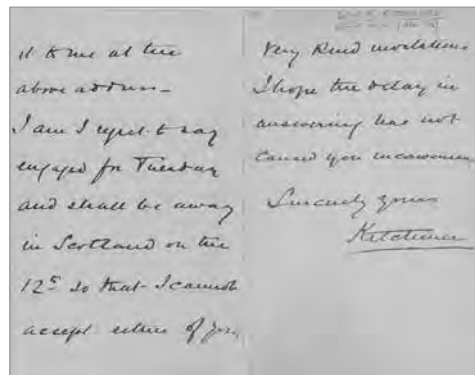 it to me at the
above address –
I am I regret to say
engaged for Tuesday
and shall be away
in Scotland on the
12th so that I cannot
accept either of your
very kind invitations
I hope the delay in
answering has not
caused you inconvenience
Sincerely yours
Kitchener